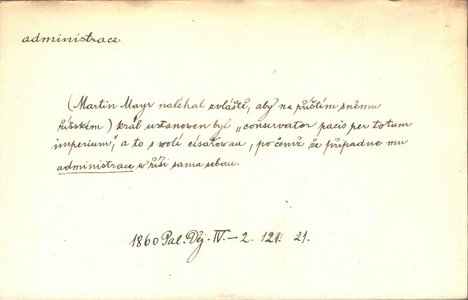 administrace
(Martin Mayr naléhal zvláště, aby na příštím sněmu
říšském) král ustanoven byl „conservator pacis per totum
imperium“, a to s volí císařovau, po čemž že připadne mu
administrace v říši sama sebau.
1860 Pal. Děj. IV.–2. 121. 21.